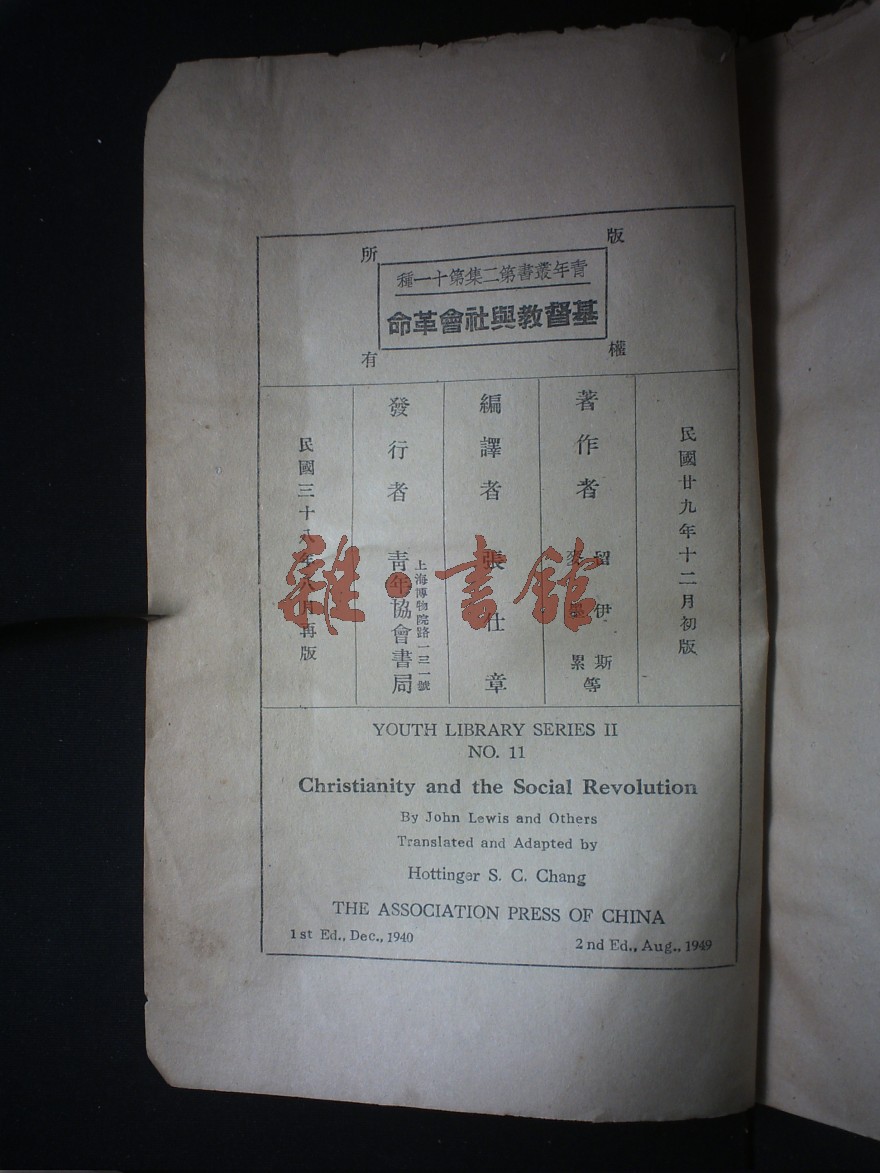 版權
所有
青年叢書第二集第十一種
基督教與社會革命
民國廿九年十二月初版
著作者
留伊斯
麥墨累
等
編譯者 張仕章
發行者 青年協會書局
上海博物院路一三一號
民國三十八年八月再版
雜·書館
YOUTH LIBRARY SERIES II
NO. 11
Christianity and the Social Revolution
By John Lewis and Others
Translated and Adapted by
Hottinger S. C. Chang
THE ASSOCIATION PRESS OF CHINA
1st Ed., Dec., 1940
2nd Ed., Aug., 1949